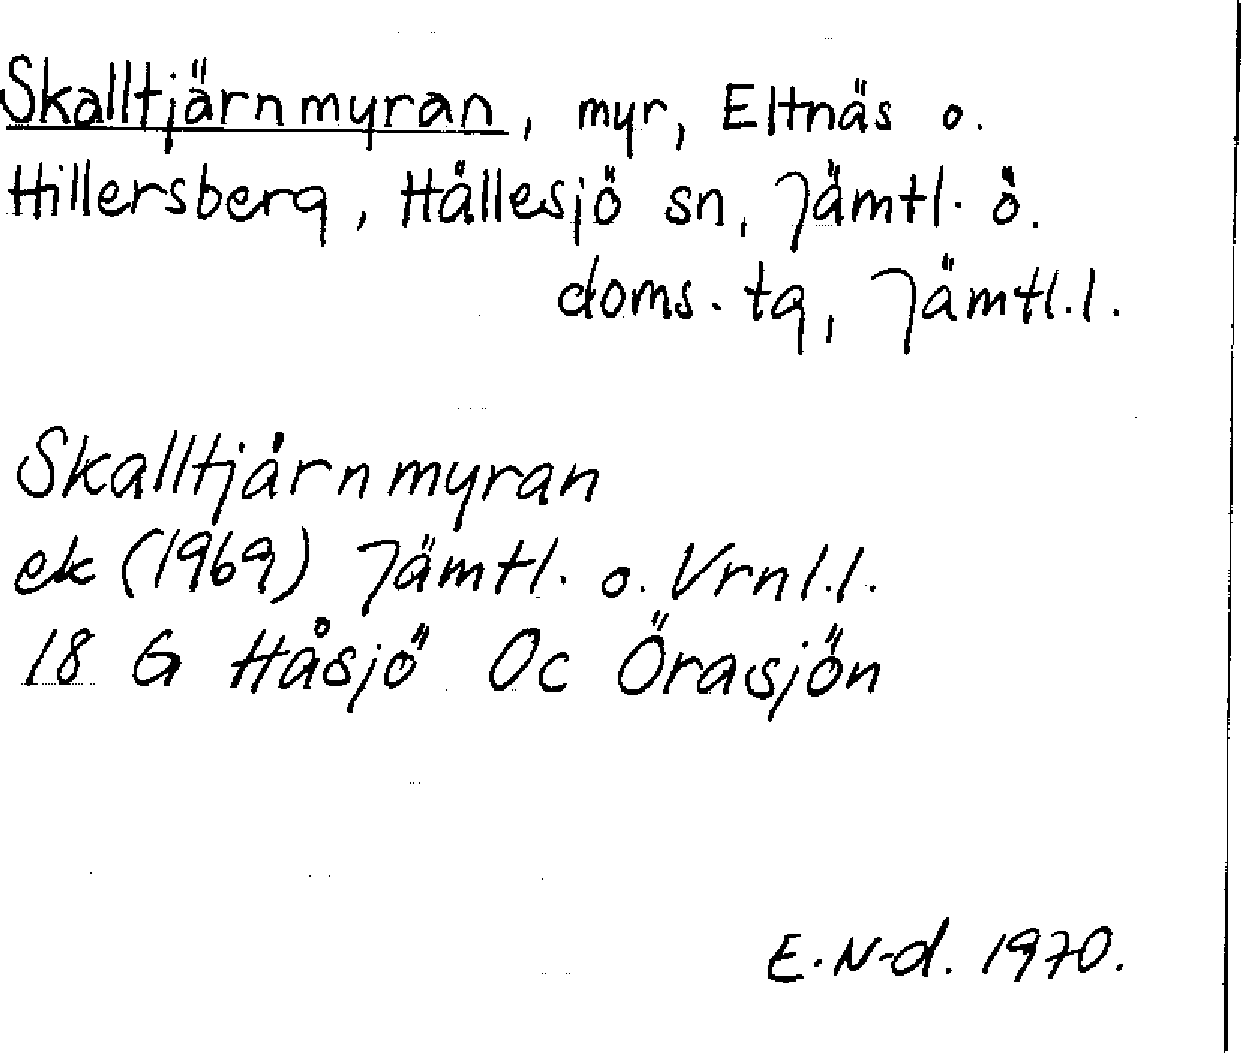 Skalltjärnmyran, myr, Eltnäs o.
Hillersberg, Hållesjö sn, Jämtl. ö.
doms. tg, Jämtl.l.
Skalltjärnmyran
ek (1969) Jämtl. o. Vrnl.l.
18 G Håsjö Oc Örasjön
E. N-d. 1970.